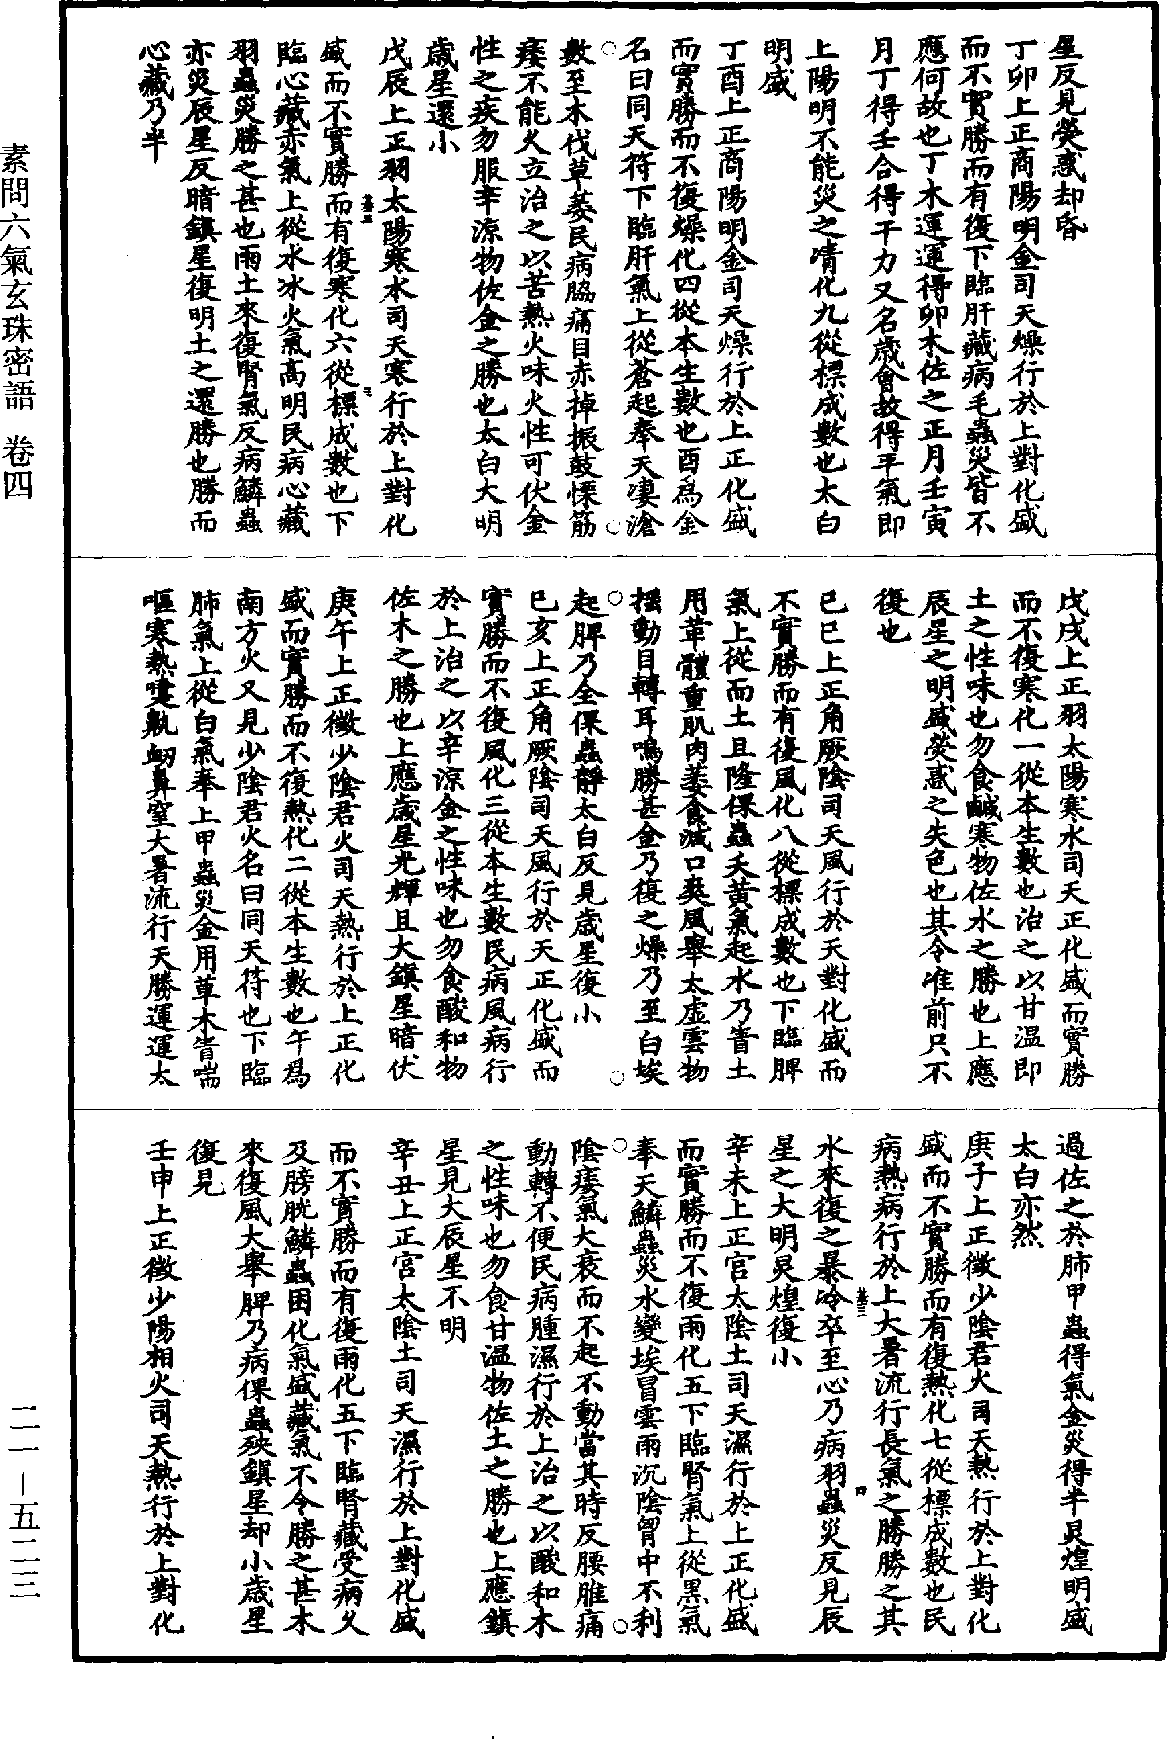 星反見熒惑却昏
丁卯上正商陽明金司天燥行於上對化盛
而不實勝而有復下臨肝藏病毛蟲災皆不
應何故也丁木運運得卯木佐之正月壬寅
月丁得壬合得干力又名歲會故得平氣即
上陽明不能災之清化九從標成數也太白
明盛
丁酉上正商陽明金司天燥行於上正化盛
而實勝而不復燥化四從本生數也酉為金
名曰同天符下臨肝氣上從蒼起奉天凄滄
數至木伐草萎民病脇痛目赤掉振鼓慄筋
痿不能久立治之以苦熱火味火性可伏金
性之疾勿服辛涼物佐金之勝也太白大明
歲星還小
戊辰上正羽太陽寒水司天寒行於上對化
盛而不實勝而有復寒化六從標成數也下
臨心藏赤氣上從水冰火氣高明民病心藏
羽蟲災勝之甚也雨土來復腎氣反病鱗蟲
亦災辰星反暗鎮星復明土之還勝也勝而
心藏乃半
戊戌上正羽太陽寒水司天正化盛而實勝
而不復寒化一從本生數也治之以甘温即
土之性味也勿食鹹寒物佐水之勝也上應
辰星之明盛熒惑之失色也其令准前只不
復也
己巳上正角厥陰司天風行於天對化盛而
不實勝而有復風化八從標成數也下臨脾
氣上從而土且隆倮蟲夭黃氣起水乃眚土
用革體重肌肉萎食減口爽風舉太虛雲物
揺動目轉耳鳴勝甚金乃復之燥乃至白埃
起脾乃全倮蟲靜太白反見歲星復小
己亥上正角厥陰司天風行於天正化盛而
實勝而不復風化三從本生數民病風病行
於上治之以辛涼金之性味也勿食酸和物
佐木之勝也上應歲星光輝且大鎮星暗伏
庚午上正徵少陰君火司天熱行於上正化
盛而實勝而不復熱化二從本生數也午為
南方火又見少陰君火名曰同天符也下臨
肺氣上從白氣奉上甲蟲災金用草木眚喘
嘔寒熱嚏鼽衄鼻窒大暑流行天勝運運太
過佐之於肺甲蟲得氣金災得半炅煌明盛
太白亦然
庚子上正徵少陰君火司天熱行於上對化
盛而不實勝而有復熱化七從標成數也民
病熱病行於上大暑流行長氣之勝勝之其
水來復之暴冷卒至心乃病羽蟲災反見辰
星之大明炅煌復小
辛未上正宮太陰土司天濕行於上正化盛
而實勝而不復雨化五下臨腎氣上從黑氣
奉天鱗蟲災水變埃冒雲雨沉陰胷中不利
陰痿氣大衰而不起不動當其時反腰脽痛
動轉不便民病腫濕行於上治之以酸和木
之性味也勿食甘温物佐土之勝也上應鎮
星見大辰星不明
辛丑上正宮太陰土司天濕行於上對化盛
而不實勝而有復雨化五下臨腎藏受病久
及膀胱鱗蟲困化氣盛藏氣不令勝之甚木
來復風大舉脾乃病倮蟲殃鎮星却小歲星
復見
壬申上正徵少陽相火司天熱行於上對化
素問六氣玄珠密語　卷四
二一－五二三